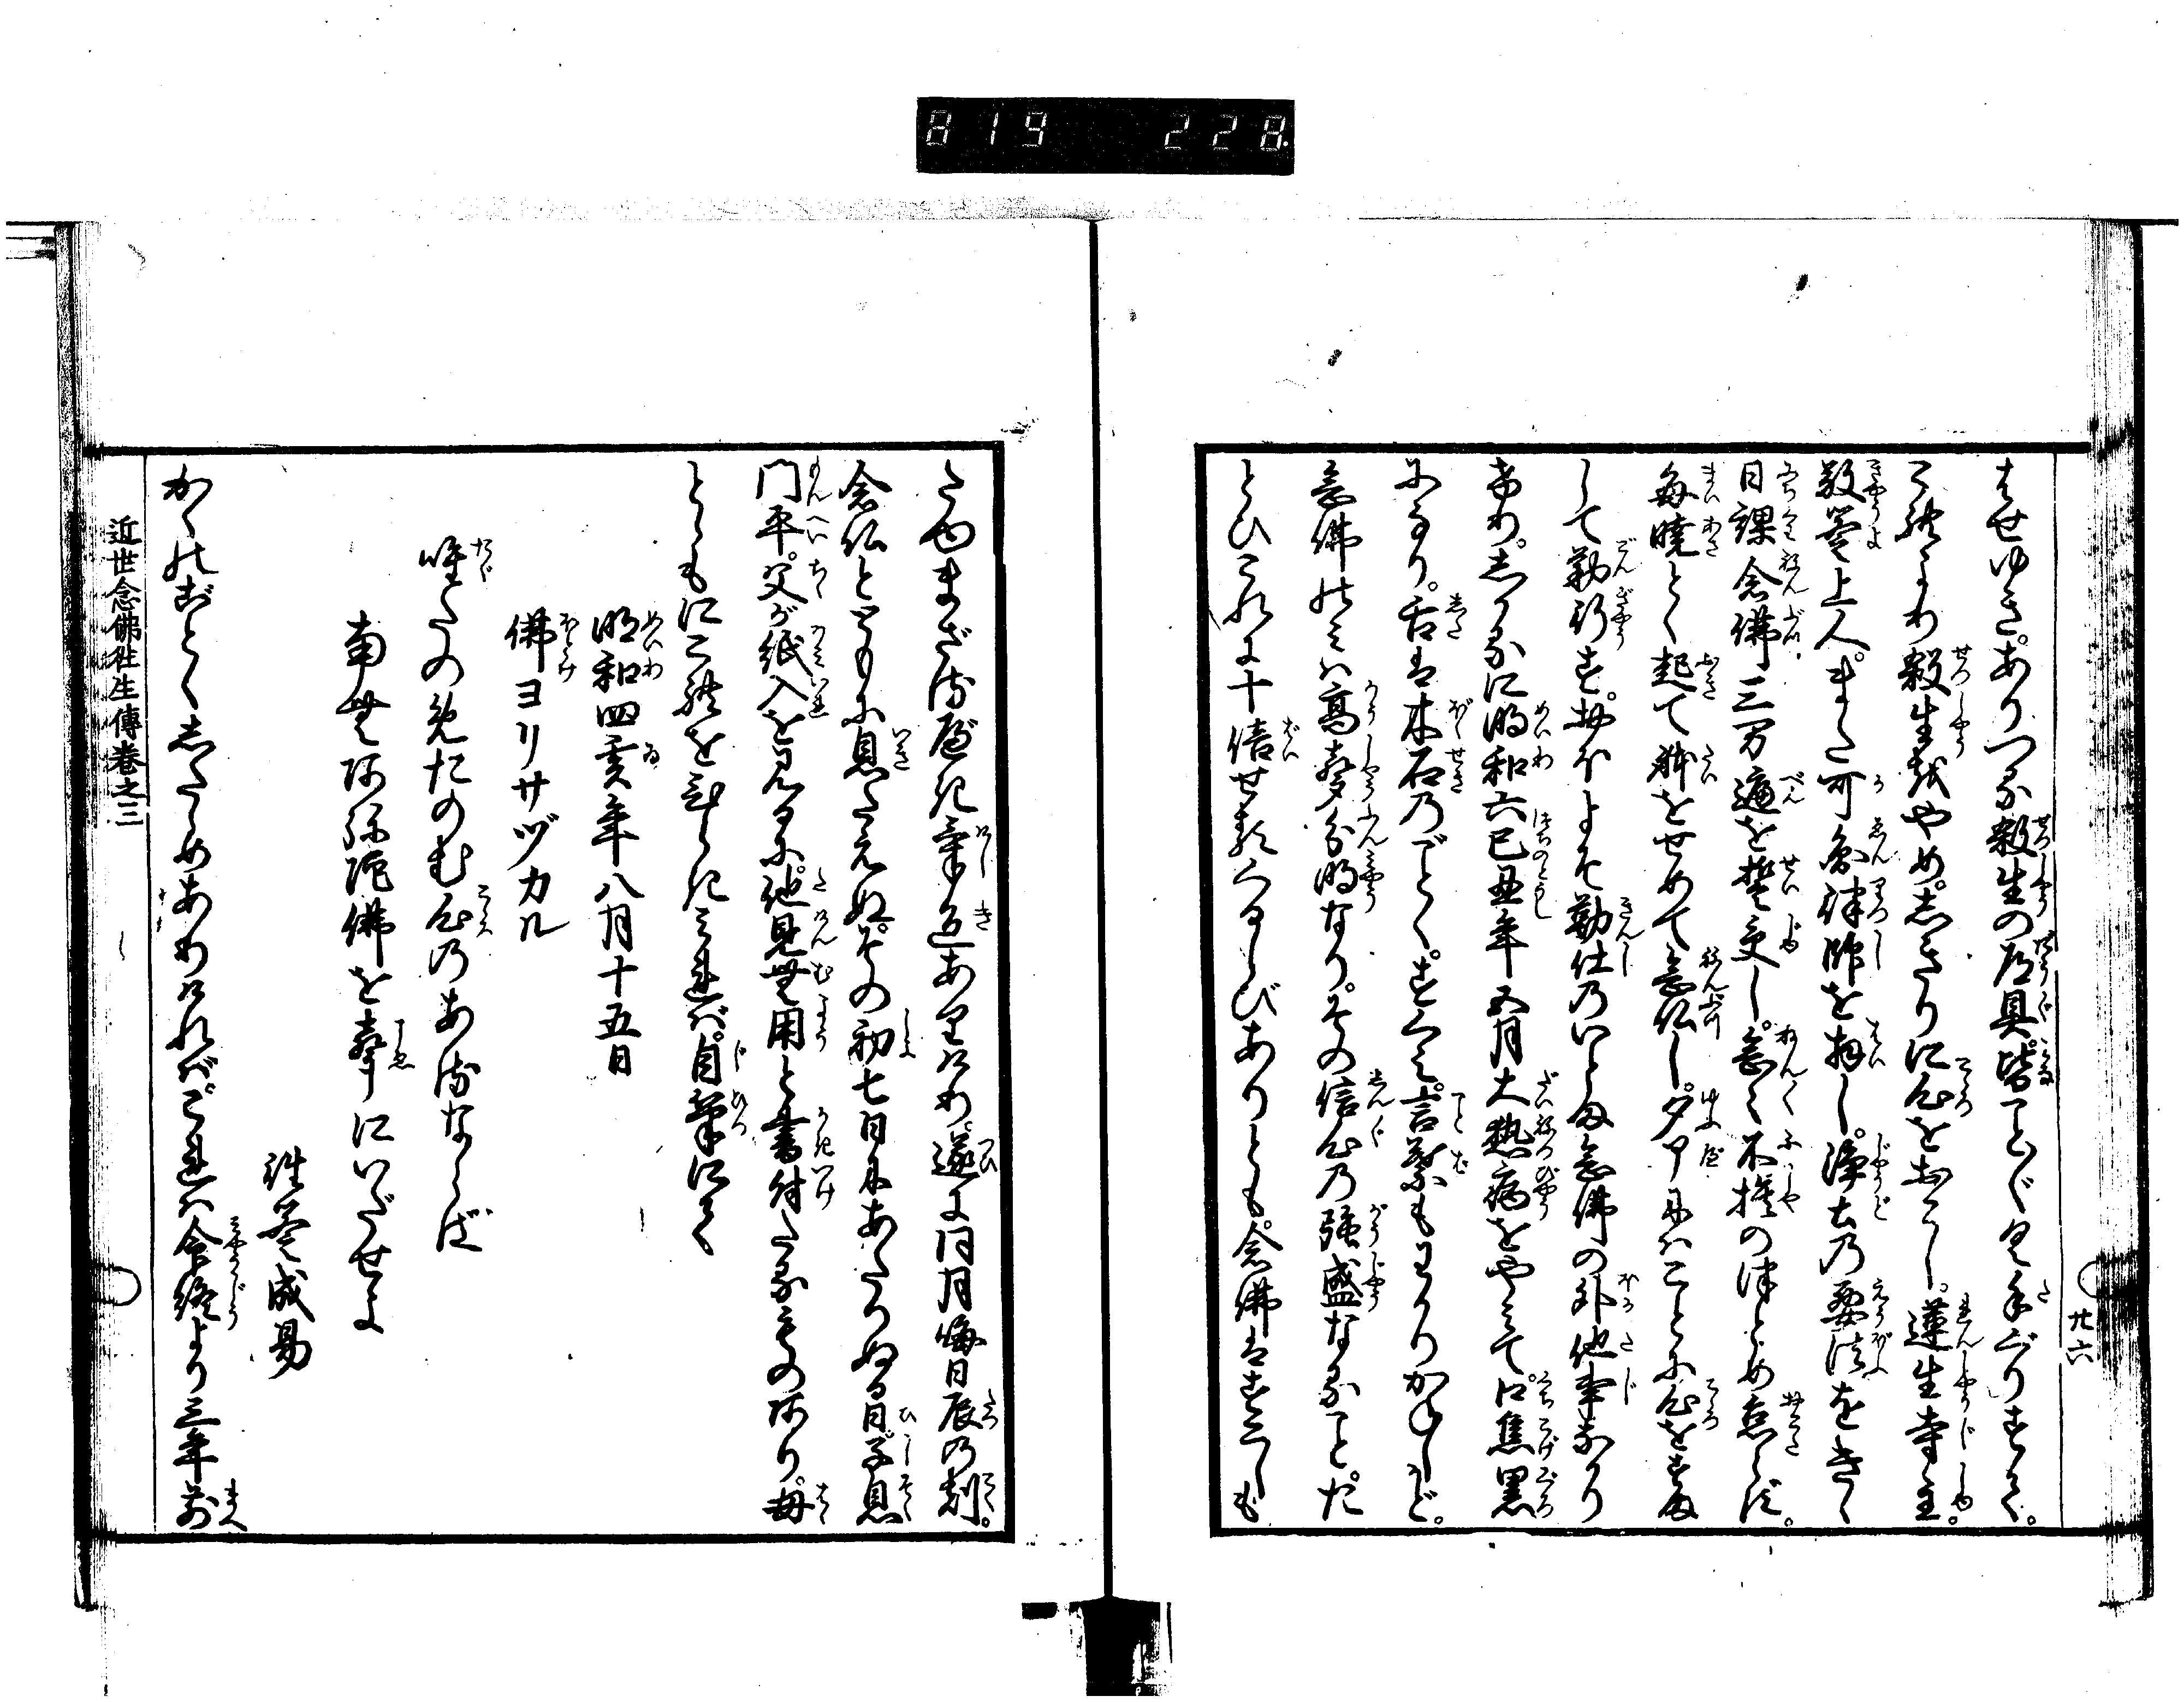 819 228
廿六
はせゆき。ありつる殺生の道具。皆ことごとくたてまつりすてて。
これより殺生をやめ。しきりに心をおこし。蓮生寺主。
敬誉上人。また可円律師を拝し。浄土の要法をきく
日課念佛三万遍を誓受し。念〻不捨のつとめ怠らず。
毎暁とく起て躰をせめて念仏し。夕 にはことに心をすま
して勤行す。 よそ勤仕のいとま念佛の外他事なり
けり。しかるに明和六己丑年五月大熱病をやみて。口焦黒
になり。舌は木石のごとく。すくみ。言葉もわかりかねしかど。
念佛のみは高聲分明なり。その信心の強盛なること。た
とひこれに十倍せる くるしびありとも。念佛はすべしも
たゆまざるべき氣色ありけり。遂に同月晦日辰の刻。
念仏とともに息たえぬ。その初七日にあたりぬる日。子息
門平。父が紙入を見るに。他見無用と書付たるもの有り。母
とともにこれをひらきみれば。自筆にて
明和四亥年八月十五日
佛ヨリサヅカル
唯たのめたのむ心のあるならば
南無阿弥陀佛を聲にいだせよ
誉成易
かくのごとくしたゝめありければ。これは命終より三年前
近世念佛往生傳巻之三